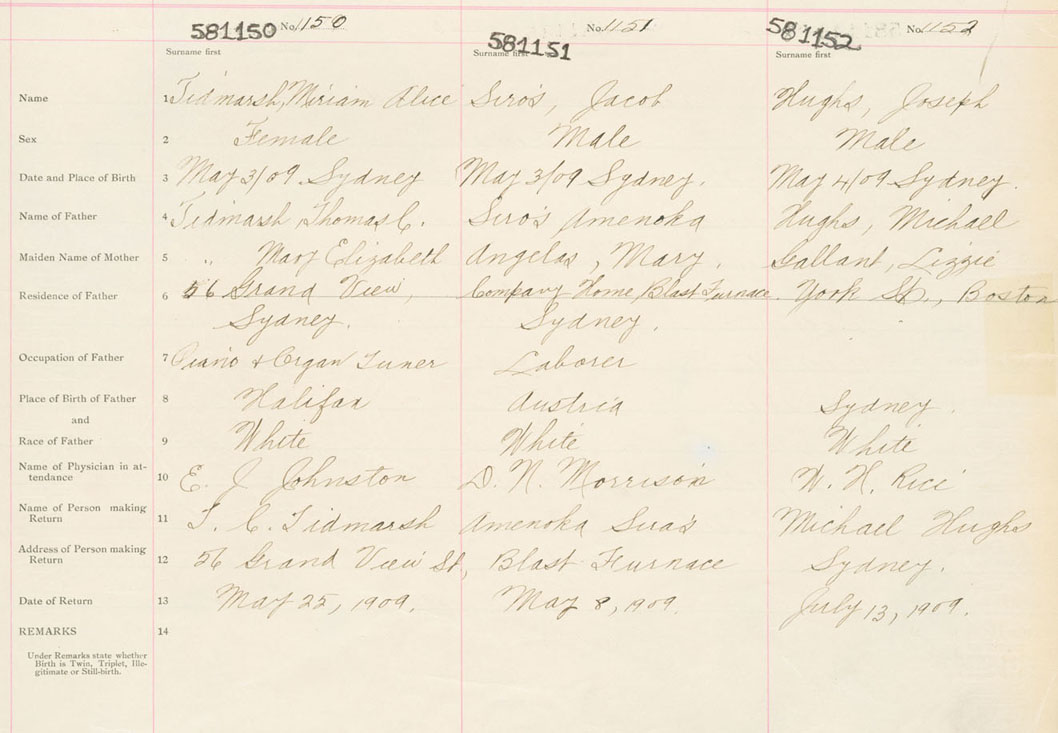 581150 No. 1150 581151 No. 1151 581152 No. 1152
Surname first Surname first Surname first
Name 1 Tidmarsh, Miriam Alice Siro's, Jacob Hughs, Joseph
Sex 2 Female Male Male
Date and Place of Birth 3 May 3/09 Sydney May 3/09 Sydney. May 4/09 Sydney.
Name of Father 4 Tidmarsh, Thomas C. Siro's Amenoka Hughs, Michael
Maiden Name of Mother 5 " Mary Elizabeth Angelas, Mary. Gallant, Lizzie
Residence of Father 6 56 Grand View, Company Home Blast Furnace. York St., Boston
Sydney. Sydney.
Occupation of Father 7 Piano & Organ Tuner Laborer
Place of Birth of Father 8 Halifax Austria Sydney.
and
Race of Father 9 White White White
Name of Physician in at-
tendance 10 E. J. Johnston D. N. Morrison W. H. Rice
Name of Person making
Return 11 T. C. Tidmarsh Amenoka Siras Michael Hughs
Address of Person making
Return 12 56 Grand View St, Blast Furnace Sydney.
Date of Return 13 May 25, 1909. May 8, 1909. July 13, 1909.
REMARKS 14
Under Remarks state whether
Birth is Twin, Triplet, Ille-
gitimate or Still-birth.